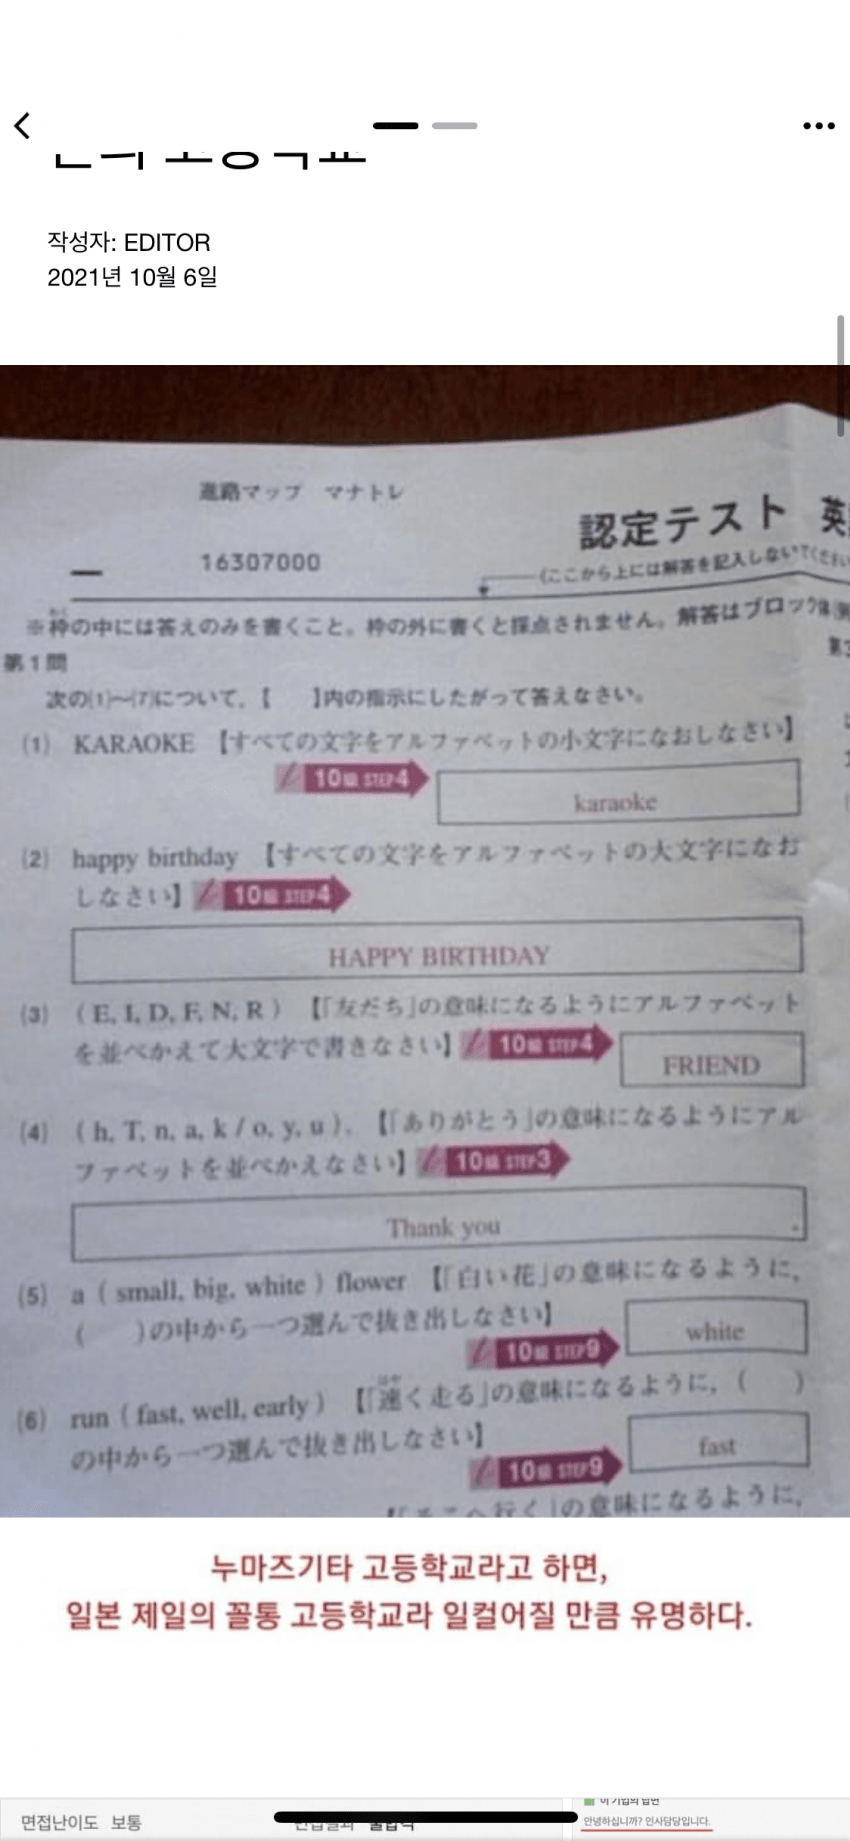 작성자: EDITOR
2021년 10월 6일
進路マップ マナトレ
認定テスト
16307000
(ここから上には解答を記入しないでください
※枠の中には答えのみを書くこと。枠の外に書くと採点されません。解答はブロック体
わく
第1問
次の(1)~(7)について,【 】内の指示にしたがって答えなさい。
(1) KARAOKE 【すべての文字をアルファベットの小文字になおしなさい】
10級 STEP4
karaoke
(2) happy birthday 【すべての文字をアルファベットの大文字になお
しなさい】 10級 STEP4
HAPPY BIRTHDAY
(3) ( E, I, D, F, N, R ) 【「友だち」の意味になるようにアルファベット
を並べかえて大文字で書きなさい】 10級 STEP4
FRIEND
(4) ( h, T, n, a, k / o, y, u ). 【「ありがとう」の意味になるようにアル
ファベットを並べかえなさい】 10級 STEP3
Thank you
(5) a ( small, big, white ) flower 【「白い花」の意味になるように,
( )の中から一つ選んで抜き出しなさい】
10級 STEP9
white
はや
(6) run ( fast, well, early ) 【「速く走る」の意味になるように, ( )
の中から一つ選んで抜き出しなさい】
10級 STEP9
fast
行く」の意味になるように,
누마즈기타 고등학교라고 하면,
일본 제일의 꼴통 고등학교라 일컬어질 만큼 유명하다.
면접난이도 보통
안녕하십니까? 인사담당입니다.